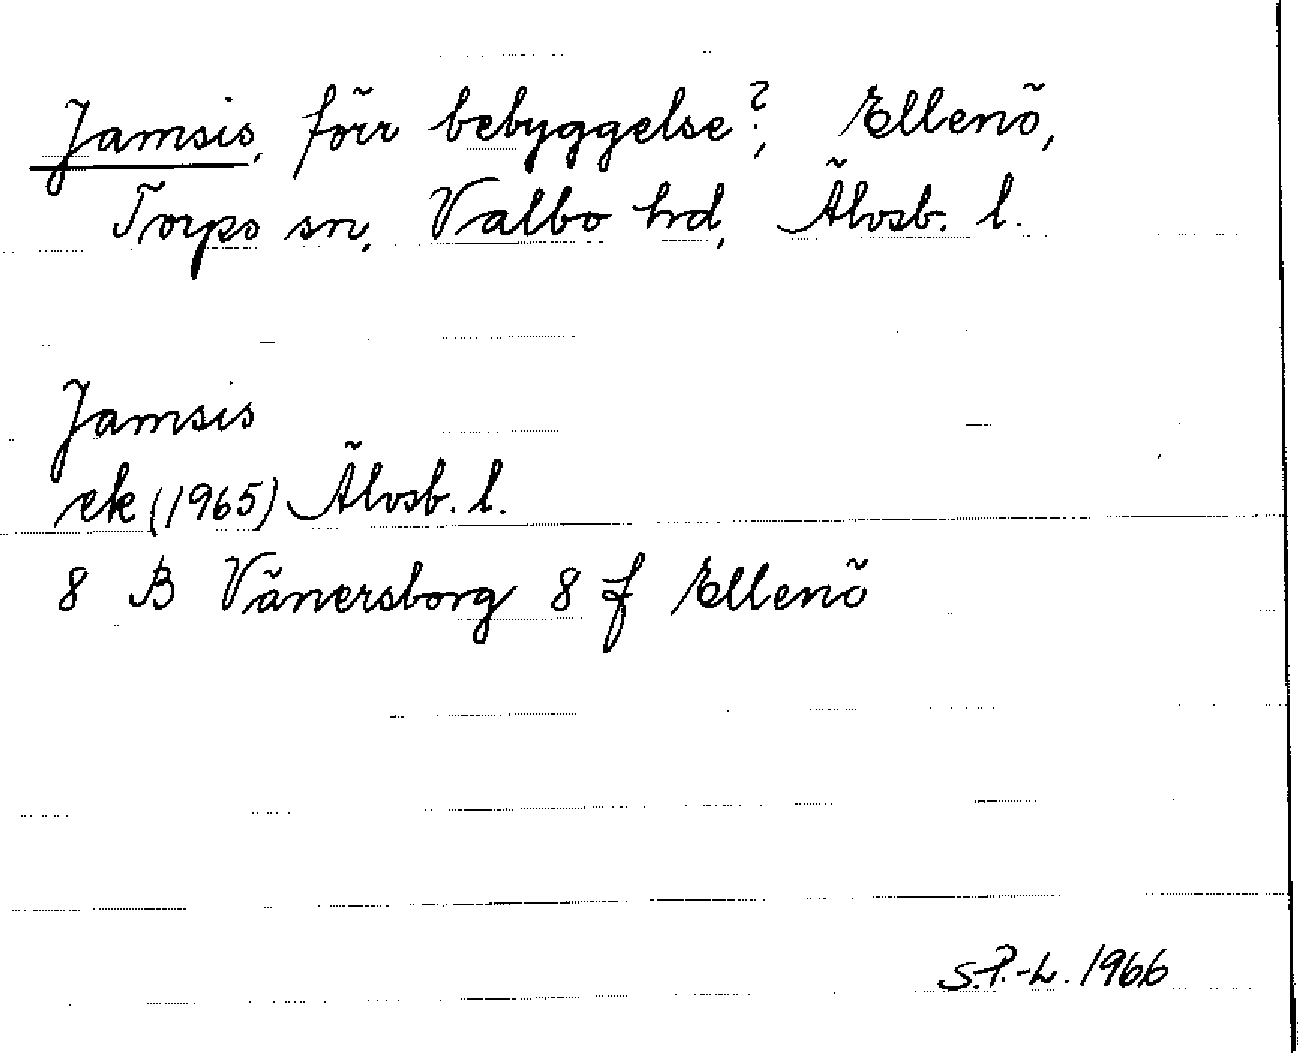 Jamsis, förr bebyggelse?, Ellenö,
Torpo sn, Valbo hd, Älvsb. l.
Jamsis
ek (1965) Älvsb. l.
8 B Vänersborg 8 f Ellenö
S.P.-L. 1966